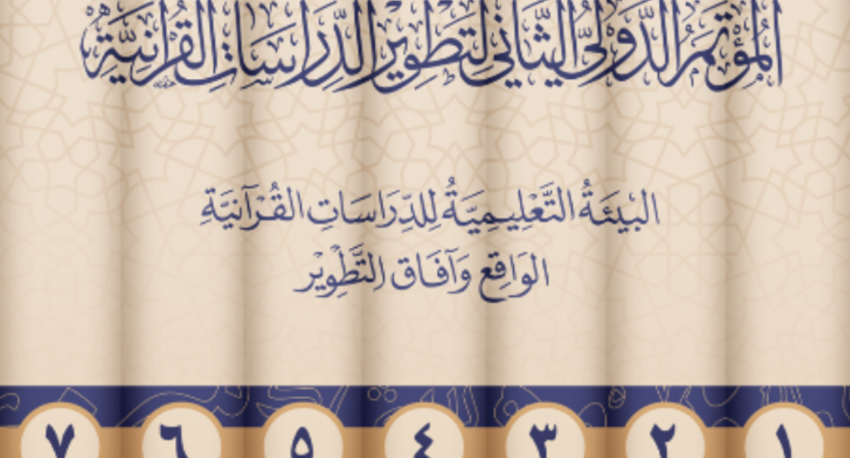 المُؤْتَمَرُ الدَّوْلِيُّ الثَّانِي لِتَطْوِيْرِ الدِّرَاسَاتِ القُرْآنِيَّةِ
البِيْئَةُ التَّعْلِيمِيَّةُ لِلدِّرَاسَاتِ القُرْآنِيَّةِ
الوَاقِع وَآفَاق التَّطْوِيْر
١ ٢ ٣ ٤ ٥ ٦ ٧